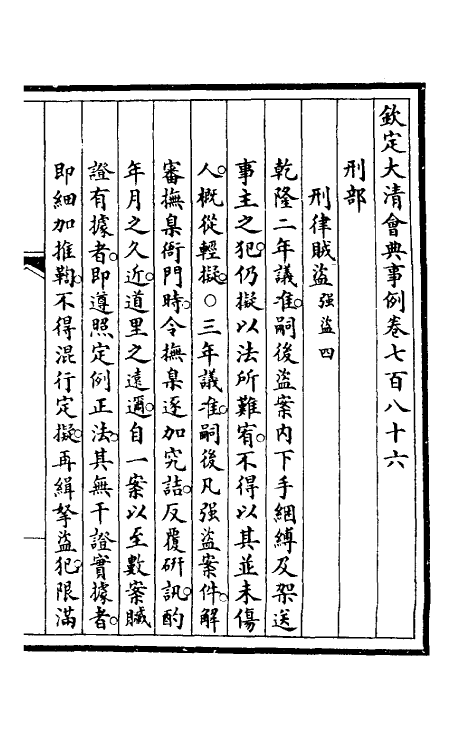 欽定大清會典事例卷七百八十六
刑部
刑律賊盜强盜四
乾隆二年議准嗣後盜案內下手綑縛及架送
事主之犯仍擬以法所難宥不得以其並未傷
人概從輕擬○三年議准嗣後凡强盜案件解
審撫臬衙門時令撫臬逐加究詰反覆研訊酌
年月之久近道里之遠邇自一案以至數案贓
證有據者即遵照定例正法其無干證實據者
即細加推鞫不得混行定擬再緝拏盜犯限滿